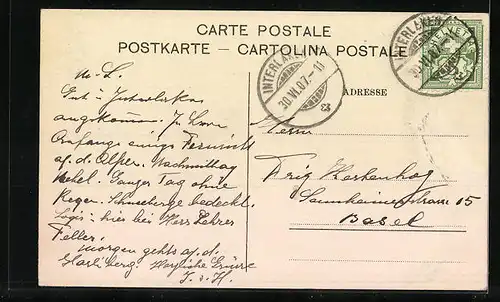 CARTE POSTALE
POSTKARTE – CARTOLINA POSTALE
INTERLAKEN
30.VI.07.-11
INTERLAKEN
30.VI.07.
HELVETIA
ADRESSE
m. L.
Gut in Interlaken
angekommen.
Anfangs einige
a. d. Alpen. Nachmittag
Nebel. Ganzer Tag ohne
Regen. Schneeberge bedeckt.
Logis: hier bei Herr Lehrer
Feller.
morgen gehts a. d.
Harliberg. Herzliche Grüsse
Herrn
Fritz
Sannheimerstrasse 15
Basel